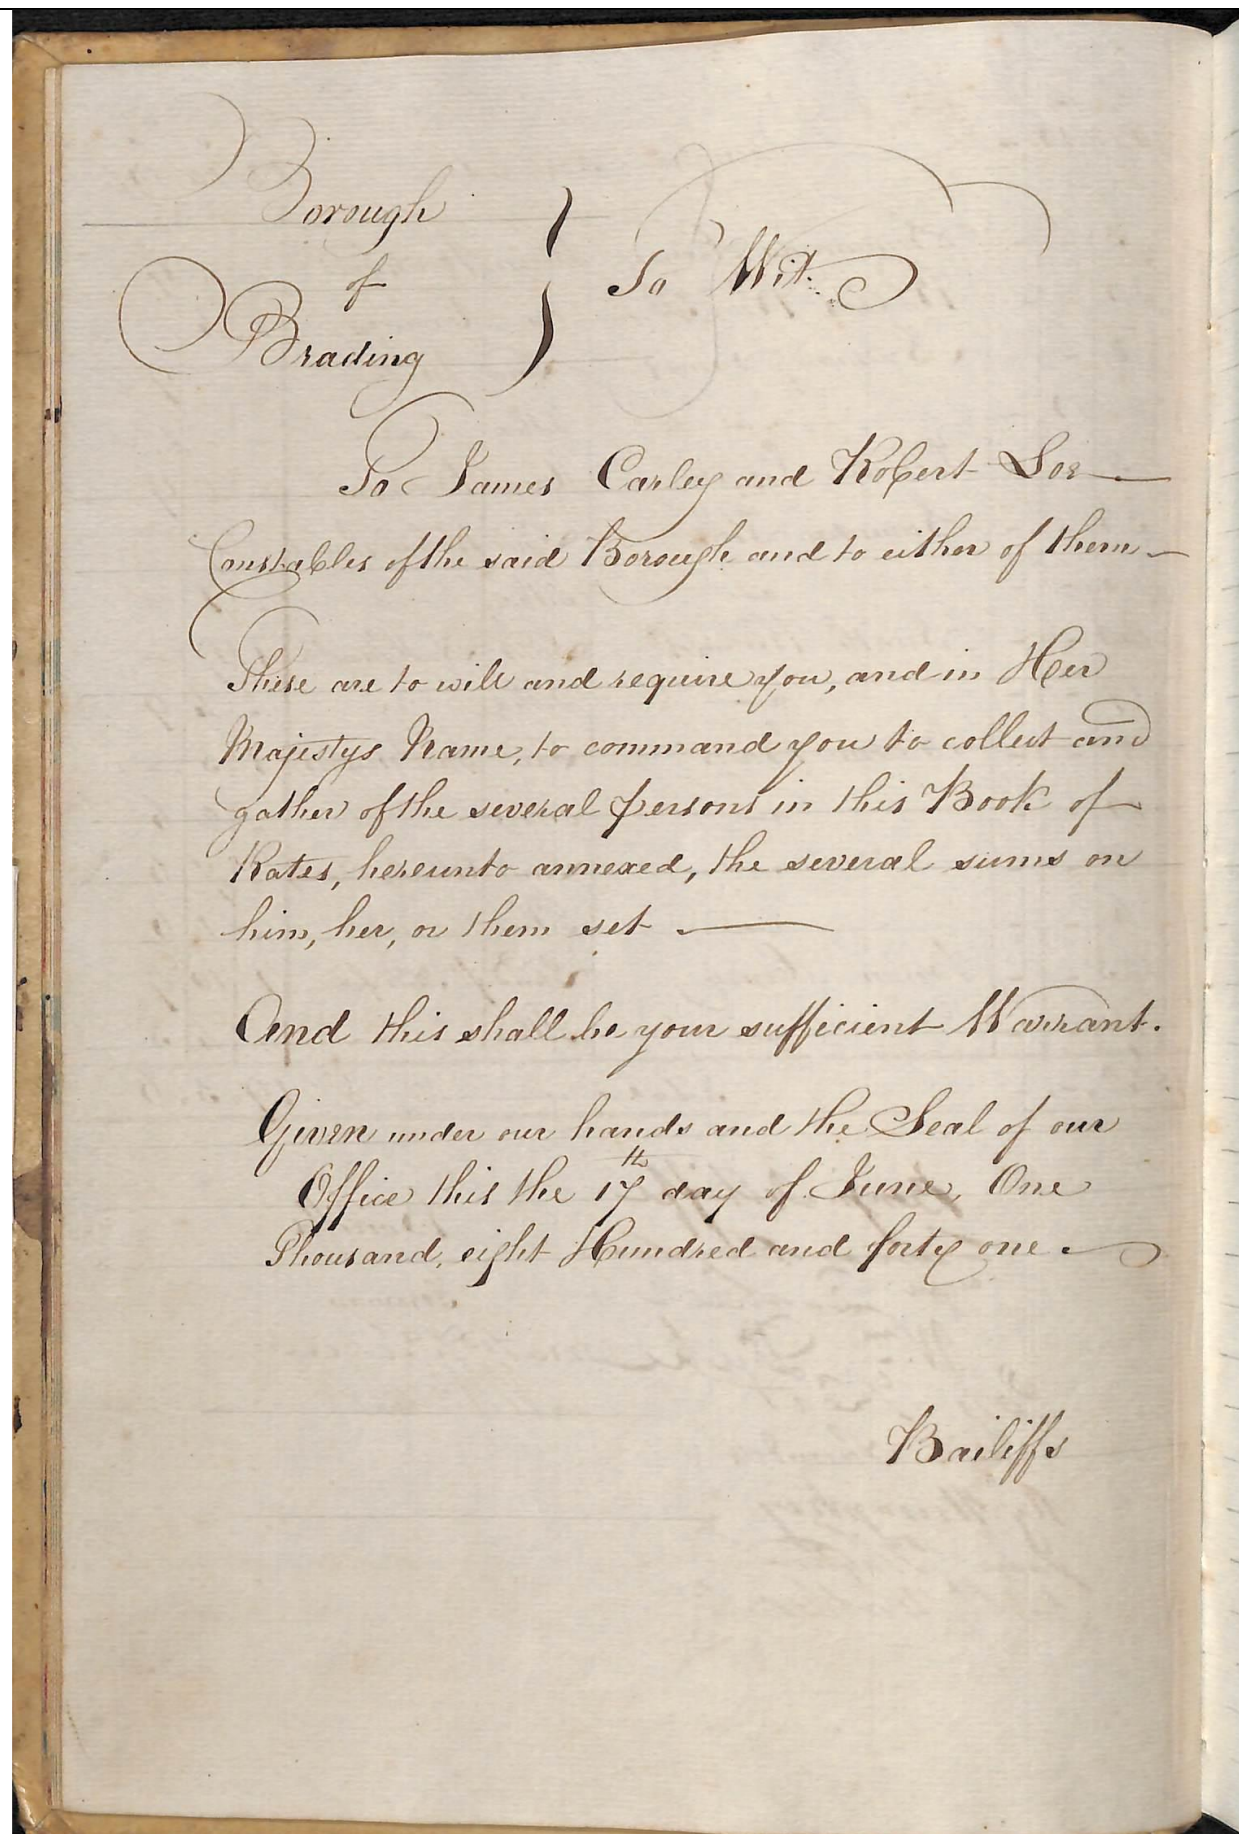 Borough
of
Brading
To Wit.
To James Carley and Robert
Constables of the said Borough and to either of them
These are to will and require you, and in Her
Majestys Name, to command you to collect and
gather of the several persons in this Book of
Rates, hereunto annexed, the several sums on
him, her, or them set
And this shall be your sufficient Warrant.
Given under our hands and the Seal of our
Office this the 17th day of June, One
Thousand, eight Hundred and forty one.
Bailiffs